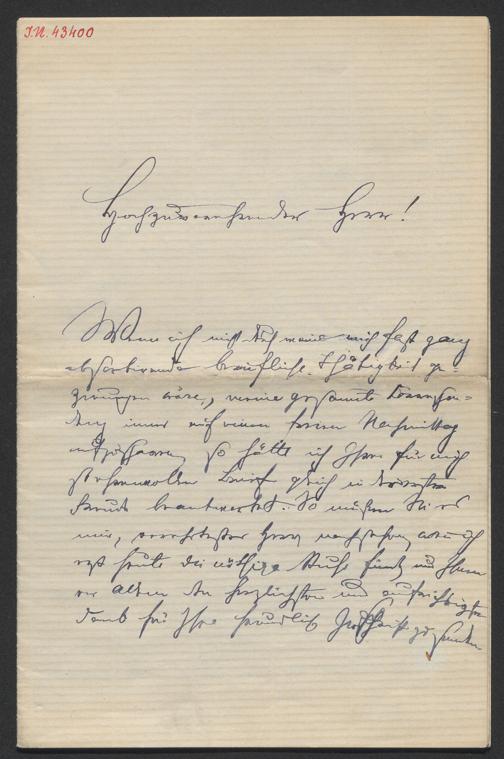 I.N. 43400
Hochzuverehrender Herr!
Wenn ich nicht durch meine mich fast ganz
absorbirende berufliche Thätigkeit ge-
zwungen wäre, meine gesamte Correspon-
denz immer auf einen freien Nachmittag
so hätte ich Ihren für mich
so ehrenvollen Brief gleich in
beantwortet. So müssen Sie es
mir, verehrtester Herr nachsehen, wenn ich
erst heute die nöthige Muße finde, um Ihnen
vor allem den herzlichsten und aufrichtigsten
Dank für Ihre freundliche Zuschrift zu senden